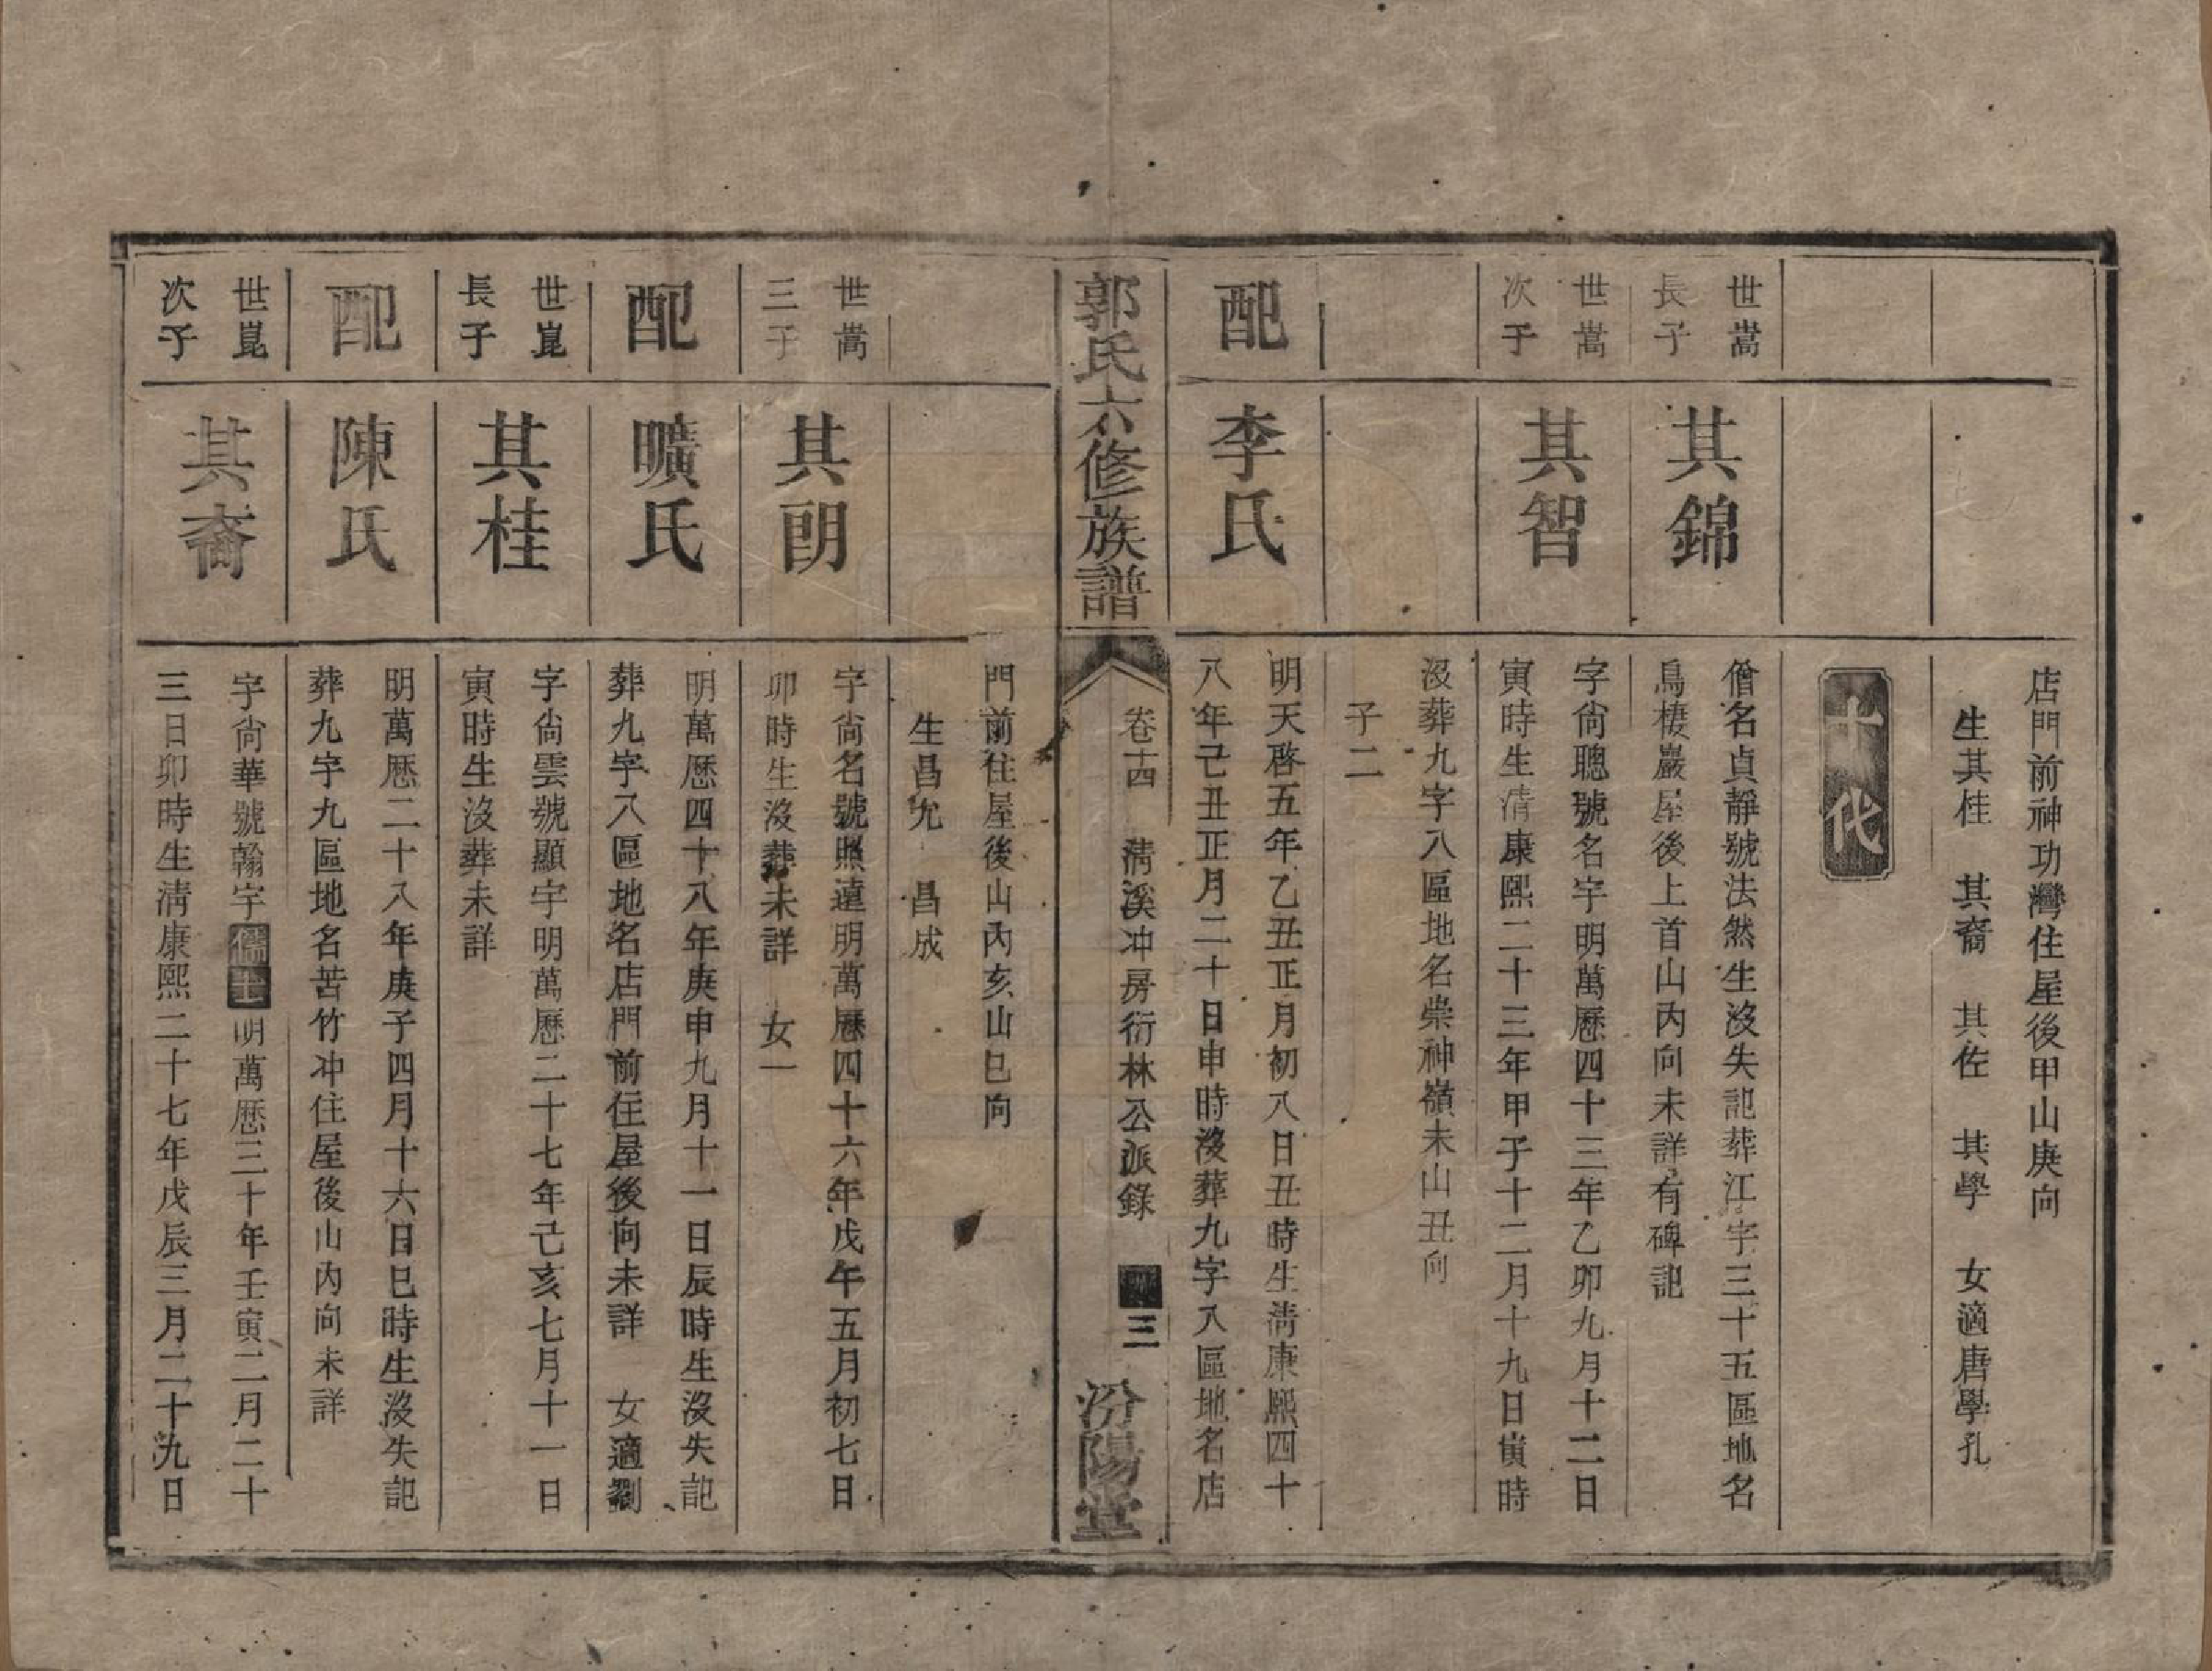 店門前神功灣住屋後甲山庚向
生其桂　其裔　其佐　其學　女適唐學孔
十代
世嵩
長子
其錦
僧名貞靜號法然生沒失記葬江字三十五區地名
鳥棲巖屋後上首山丙向未詳有碑記
世嵩
次子
其智
字尙聰號名宇明萬曆四十三年乙卯九月十二日
寅時生清康熙二十三年甲子十二月十九日寅時
沒葬九字八區地名崇神嶺未山丑向
子二
配
李氏
明天啓五年乙丑正月初八日丑時生清康熙四十
八年己丑正月二十日申時沒葬九字八區地名店
郭氏六修族譜
卷十四　清溪冲房衍林公派錄　三
汾陽堂
門前住屋後山丙亥山巳向
生昌允　昌成
世嵩
三子
其朗
字尙名號照遠明萬曆四十六年戊午五月初七日
卯時生沒葬未詳　女一
配
曠氏
明萬曆四十八年庚申九月十一日辰時生沒失記
葬九字八區地名店門前住屋後向未詳　女適劉
世崑
長子
其桂
字尙雲號顯宇明萬曆二十七年己亥七月十一日
寅時生沒葬未詳
配
陳氏
明萬曆二十八年庚子四月十六日巳時生沒失記
葬九字九區地名苦竹冲住屋後山內向未詳
世崑
次子
其裔
字尙華號翰宇儒士明萬曆三十年壬寅二月二十
三日卯時生淸康熙二十七年戊辰三月二十九日